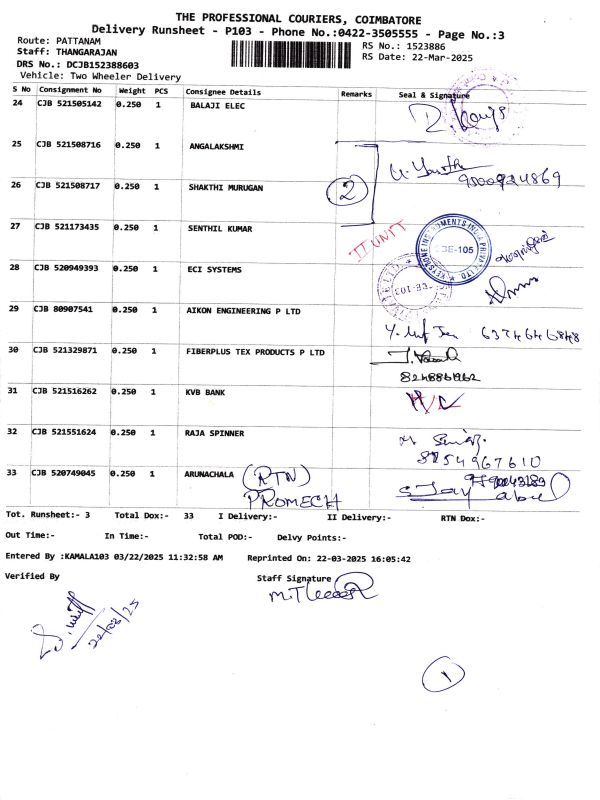 THE PROFESSIONAL COURIERS, COIMBATORE
Delivery Runsheet - P103 - Phone No.:0422-3505555 - Page No.:3
Route: PATTANAM
RS No.: 1523886
Staff: THANGARAJAN
RS Date: 22-Mar-2025
DRS No.: DCJB152388603
Vehicle: Two Wheeler Delivery
S No Consignment No Weight PCS Consignee Details Remarks Seal & Signature
24 CJB 521505142 0.250 1 BALAJI ELEC
25 CJB 521508716 0.250 1 ANGALAKSHMI
26 CJB 521508717 0.250 1 SHAKTHI MURUGAN 2
27 CJB 521173435 0.250 1 SENTHIL KUMAR II UNIT
KEYSTONE INSTRUMENTS INDIA PRIVATE
CBE-105
28 CJB 520949393 0.250 1 ECI SYSTEMS
CBE-103
29 CJB 80907541 0.250 1 AIKON ENGINEERING P LTD
30 CJB 521329871 0.250 1 FIBERPLUS TEX PRODUCTS P LTD
31 CJB 521516262 0.250 1 KVB BANK
32 CJB 521551624 0.250 1 RAJA SPINNER
8754967610
33 CJB 520749045 0.250 1 ARUNACHALA (RTN)
PROMECH
Tot. Runsheet:- 3 Total Dox:- 33 I Delivery:- II Delivery:- RTN Dox:-
Out Time:- In Time:- Total POD:- Delvy Points:-
Entered By :KAMALA103 03/22/2025 11:32:58 AM Reprinted On: 22-03-2025 16:05:42
Verified By Staff Signature
22/03/25
1